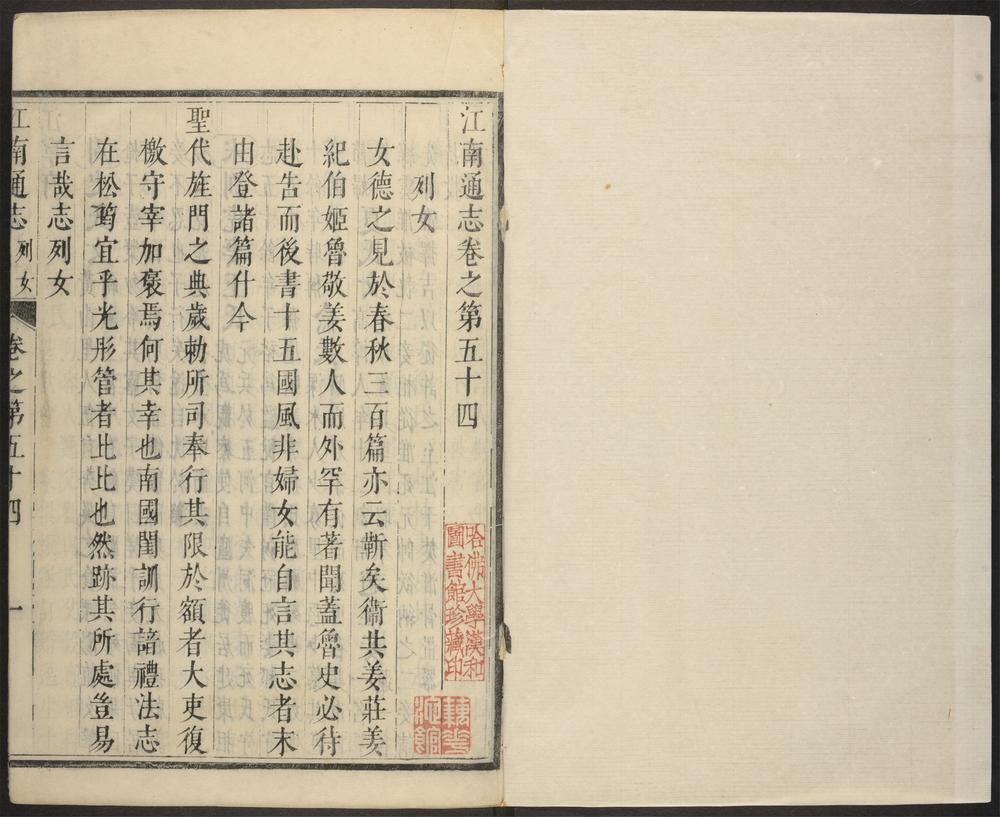 江南通志卷之第五十四
列女
女德之見於春秋三百篇亦云斬矣衞共姜莊姜
紀伯姬魯敬姜數人而外罕有著聞蓋魯史必待
赴告而後書十五國風非婦女能自言其志者末
由登諸篇什今
聖代旌門之典歲勅所司奉行其限於額者大吏復
檄守宰加褒焉何其幸也南國閨訓行諳禮法志
在松筠宜乎光彤管者比比也然跡其所處豈易
言哉志列女
江南通志 列女 卷之第五十四 一
哈佛大學漢和
圖書館珍藏印